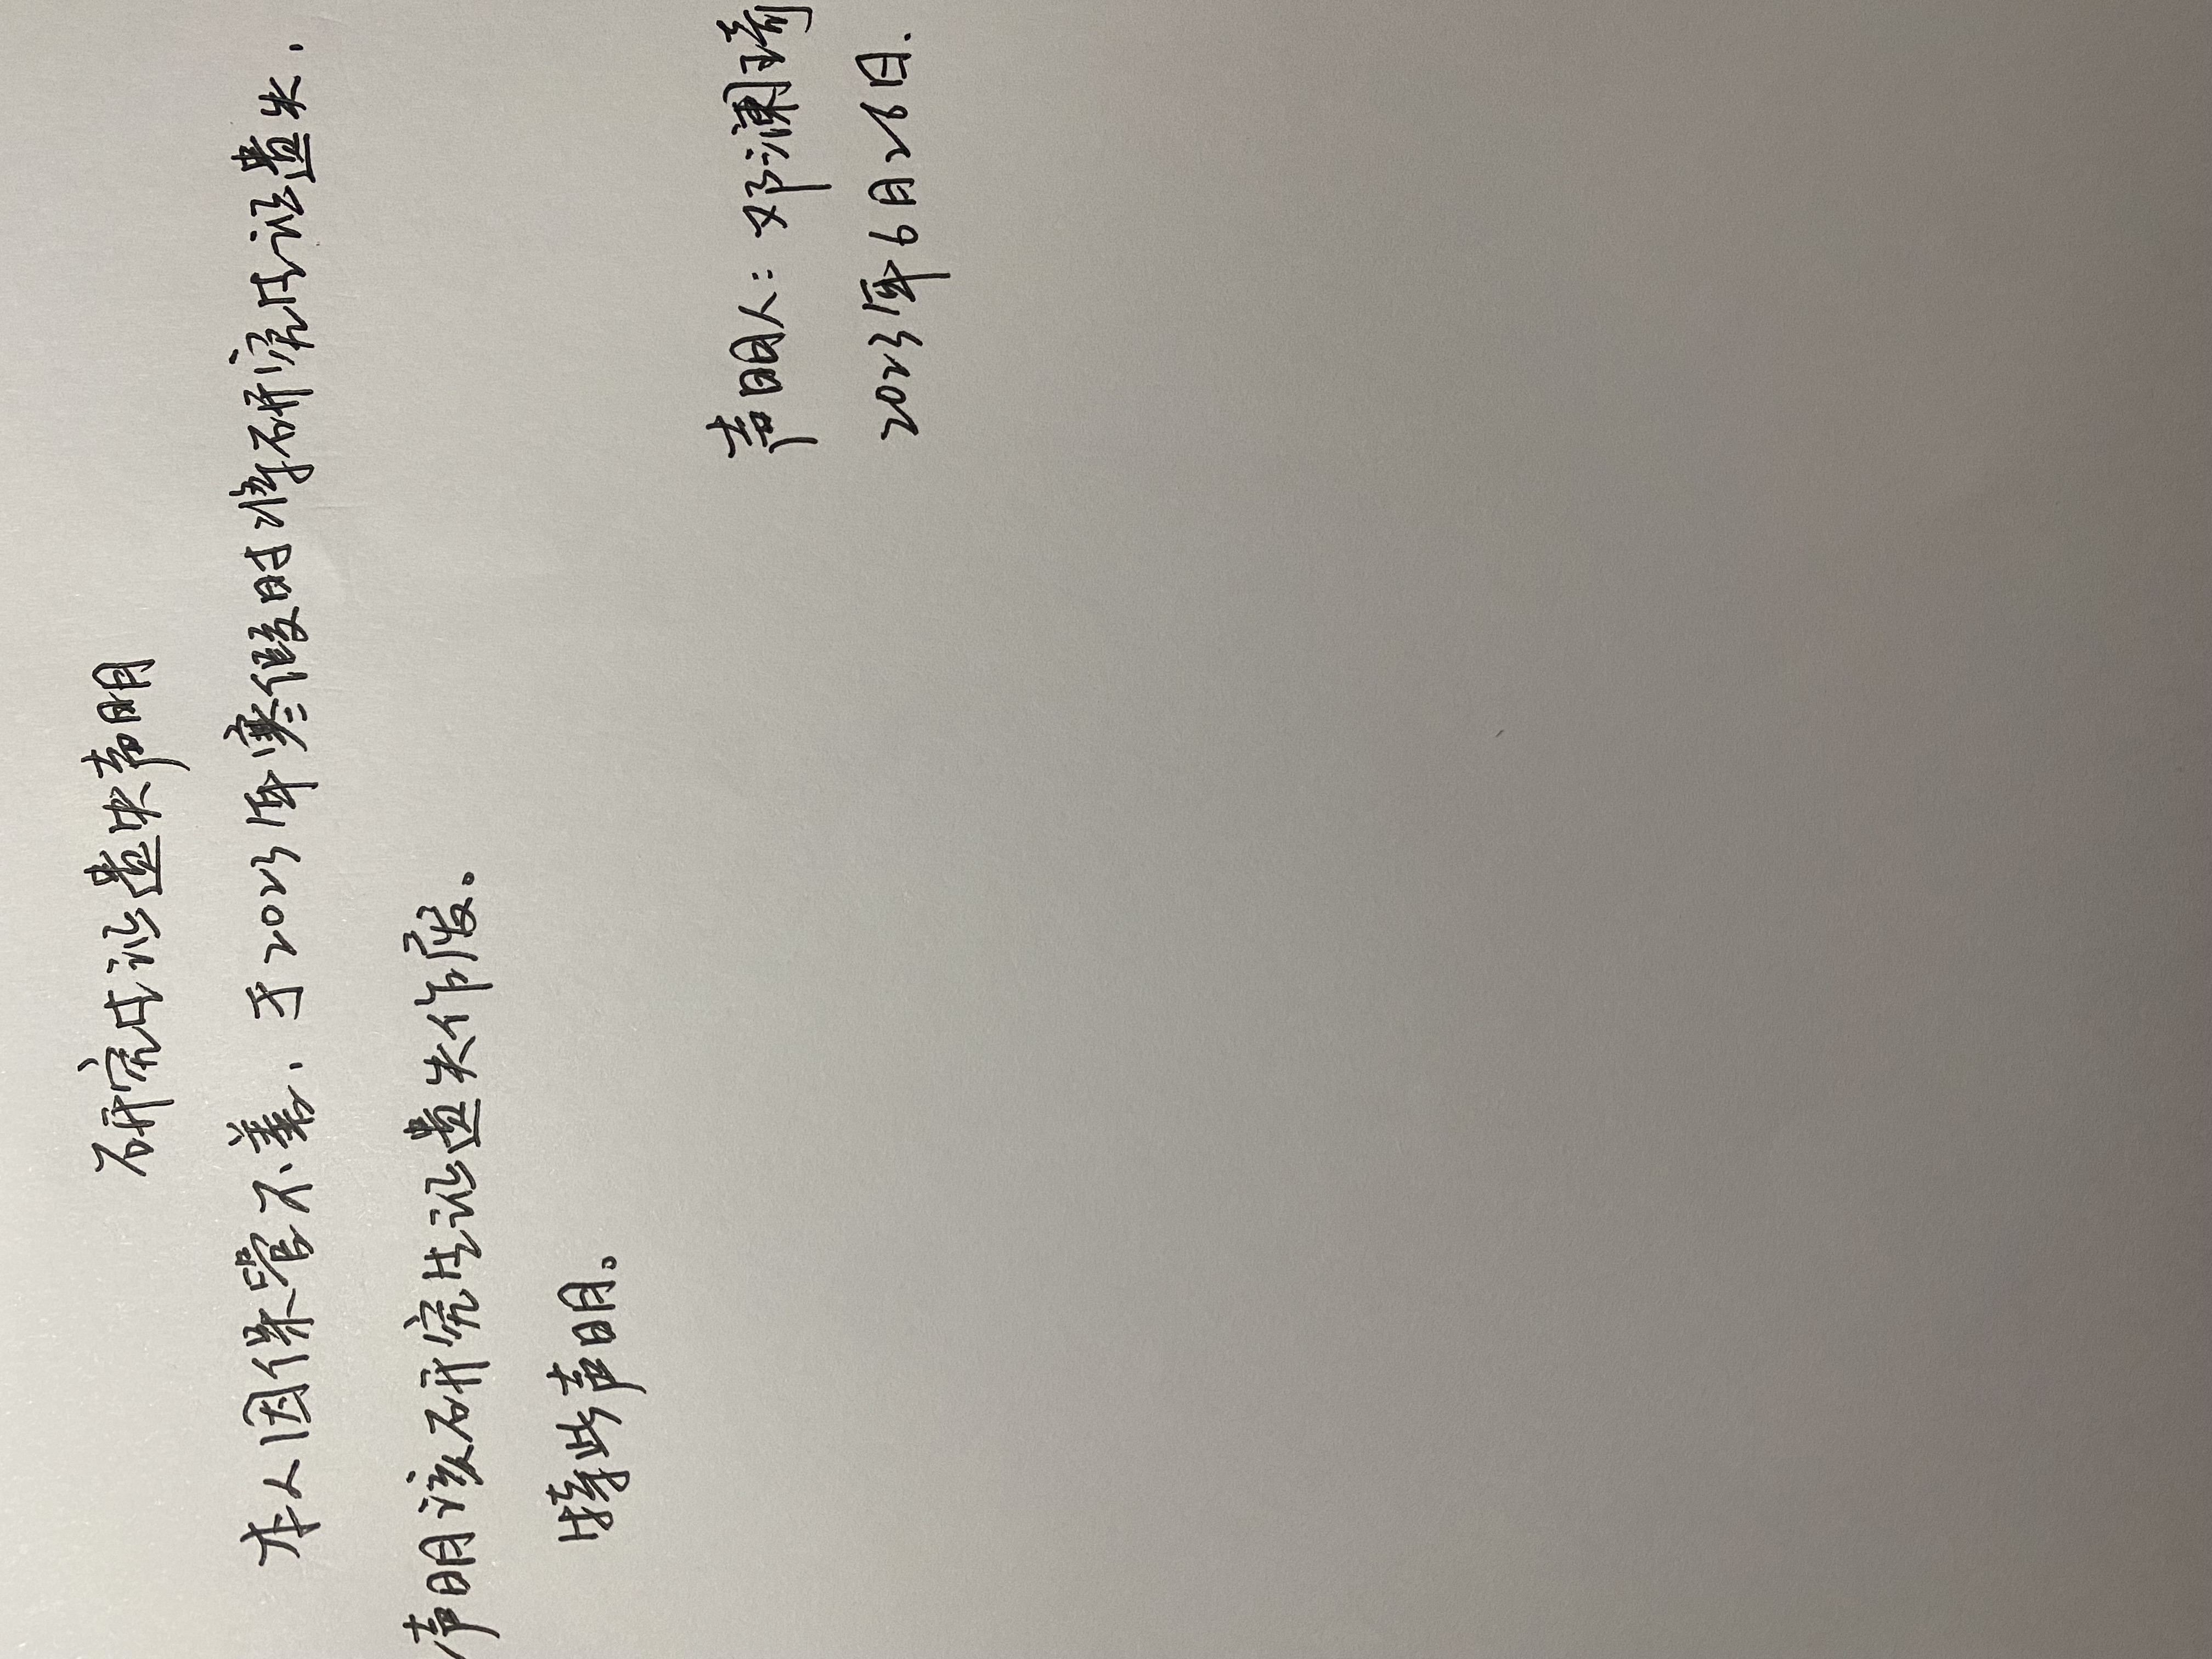 研究生证遗失声明
本人因保管不善，于2023年寒假时将研究生证遗失，
声明该研究生证遗失作废。
特此声明。
声明人：邓澜琦
2023年6月26日.